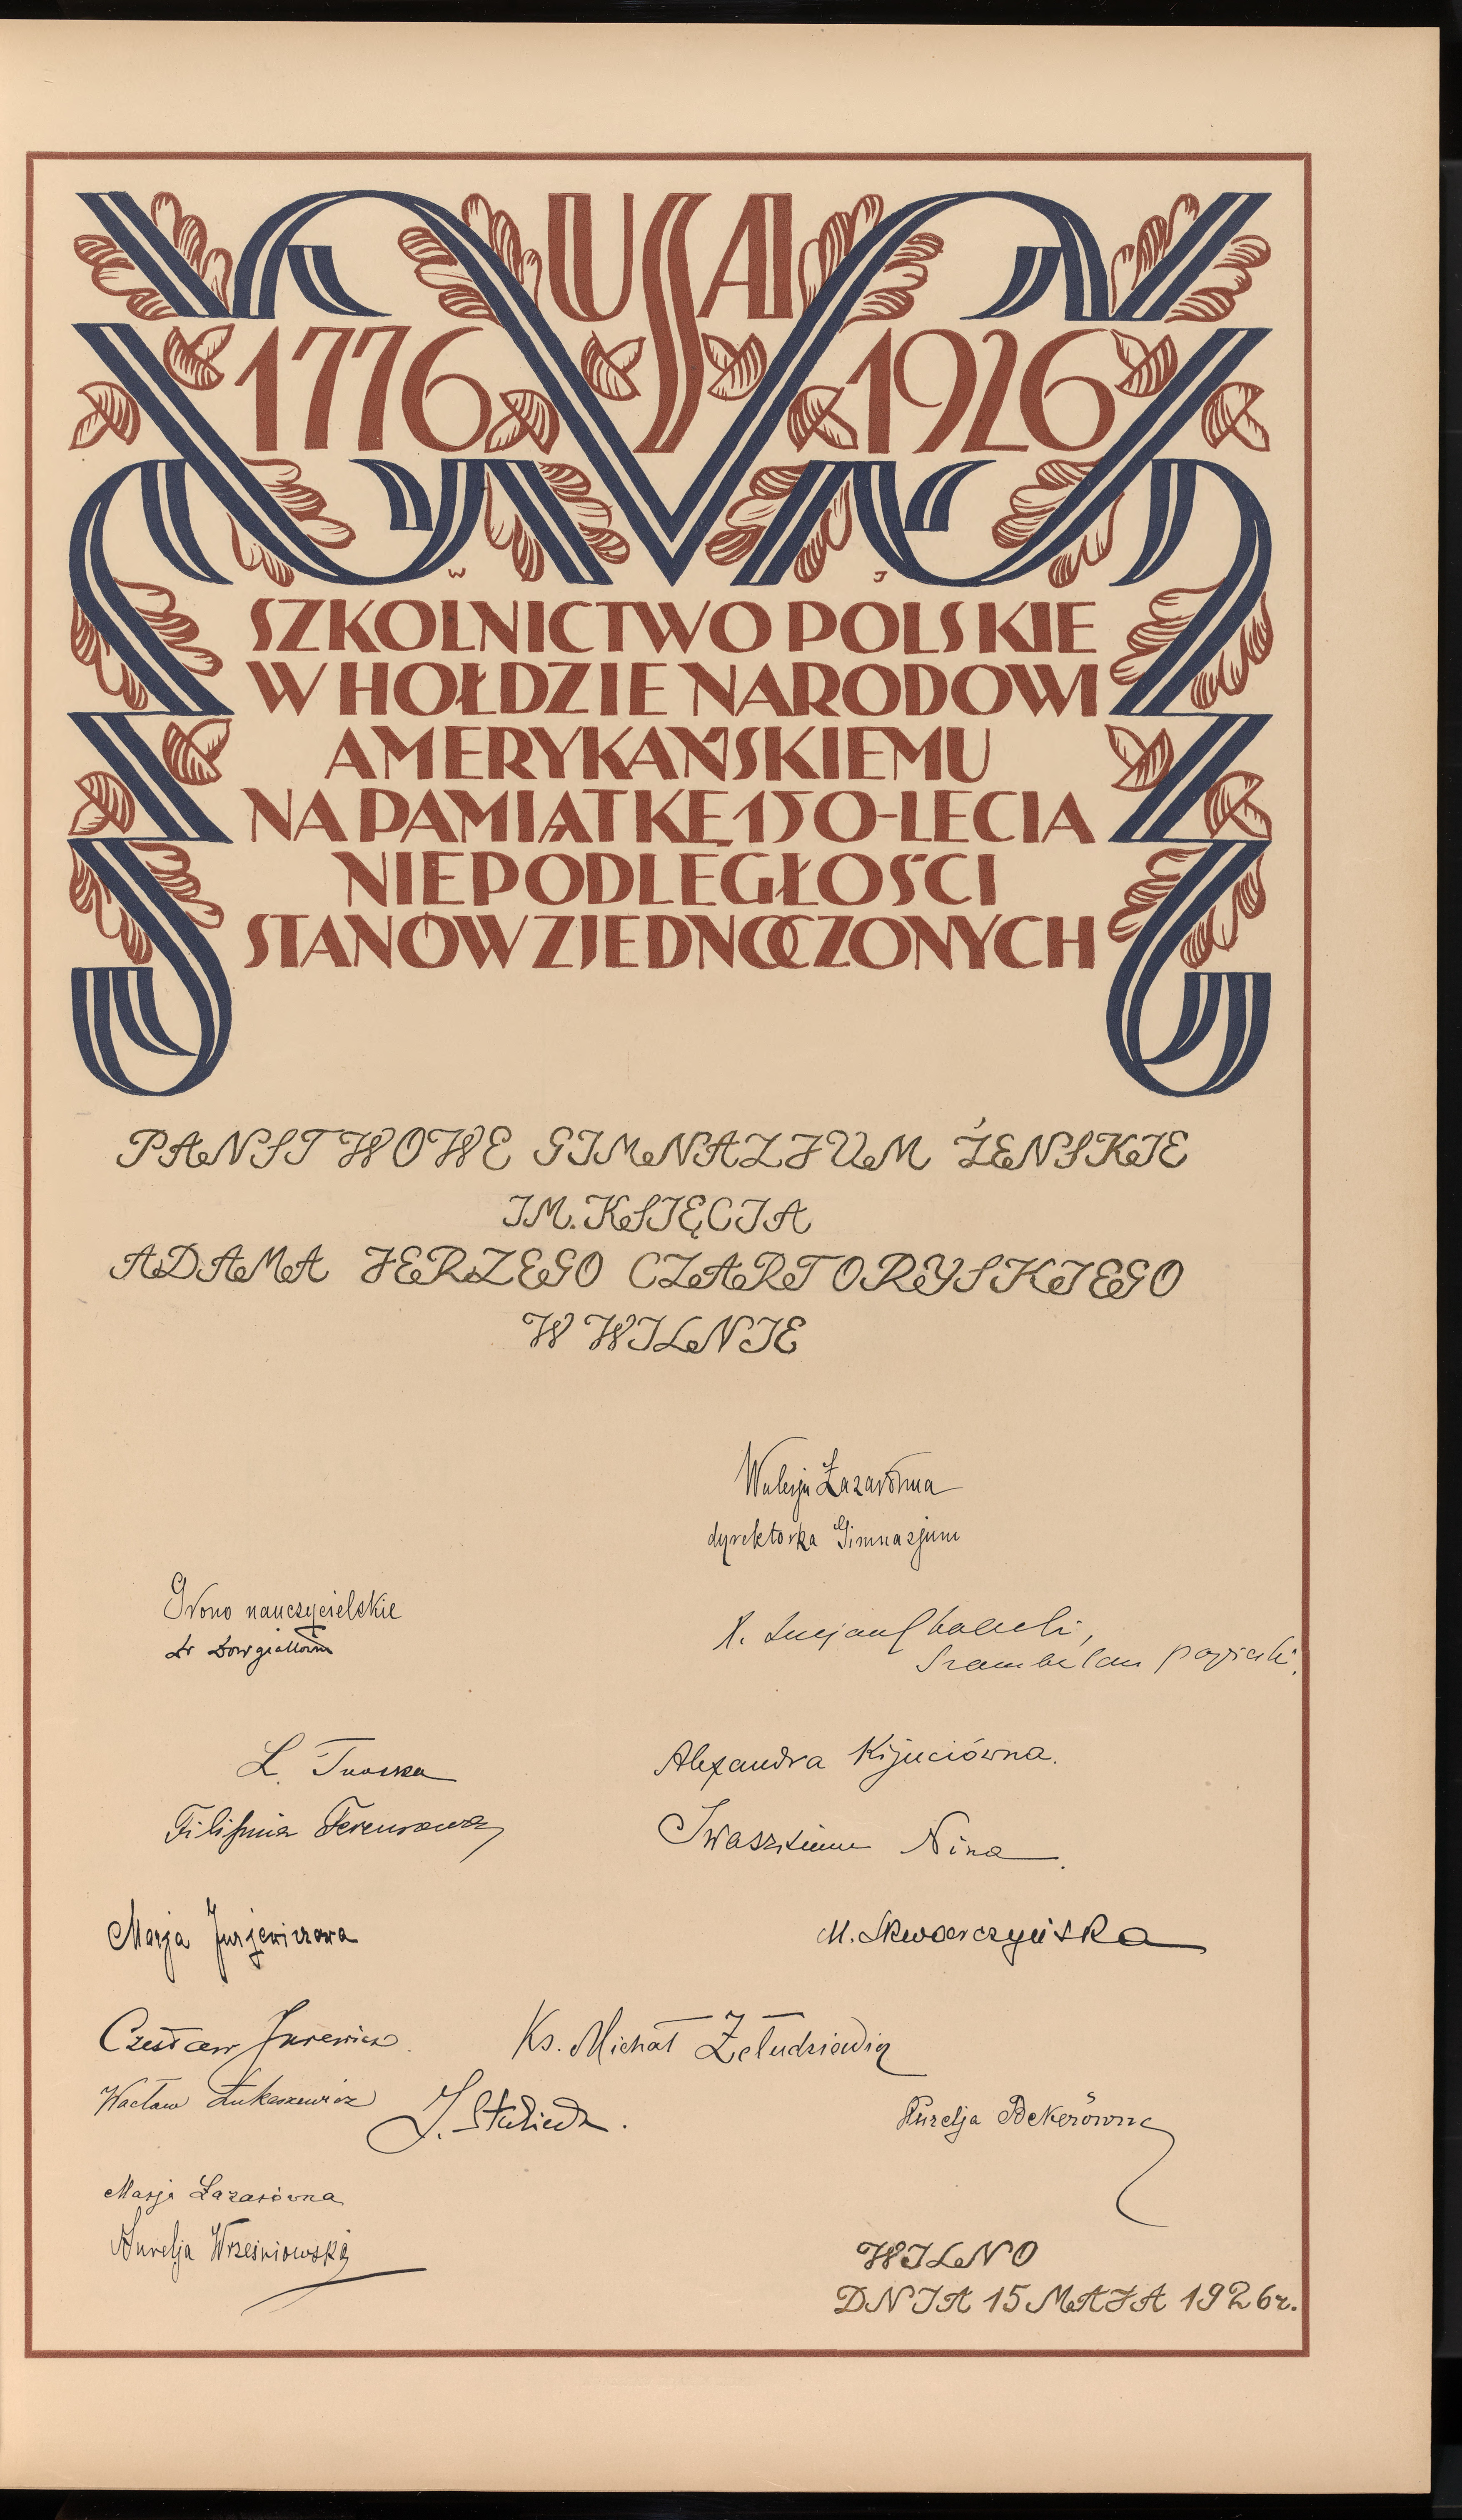 USA
1776 1926
W J
SZKOLNICTWO POLSKIE
W HOŁDZIE NARODOWI
AMERYKAŃSKIEMU
NA PAMIĄTKĘ 150-LECIA
NIEPODLEGŁOŚCI
STANÓW ZJEDNOCZONYCH
PANSTWOWE GIMNAZJUM ŻENSKIE
IM. KSIĘCIA
ADAMA JERZEGO CZARTORYSKIEGO
W WILNIE
Walerja Łazarówna
dyrektorka Gimnazjum
Grono nauczycielskie
X. Lucjan Chalecki,
Szambelan papieski.
L.
Alexandra Kijuciówna.
Nina
Marja Jurjewiczowa
M. Skwarczyńska
Czesław Jurewicz.
Ks. Michał Żełudziewicz
Wacław Łukaszewicz
J.
Aurelja Bekerówna
Marja Łazarówna
Aurelja Wrześniowska
WILNO
DNIA 15 MAJA 1926 r.